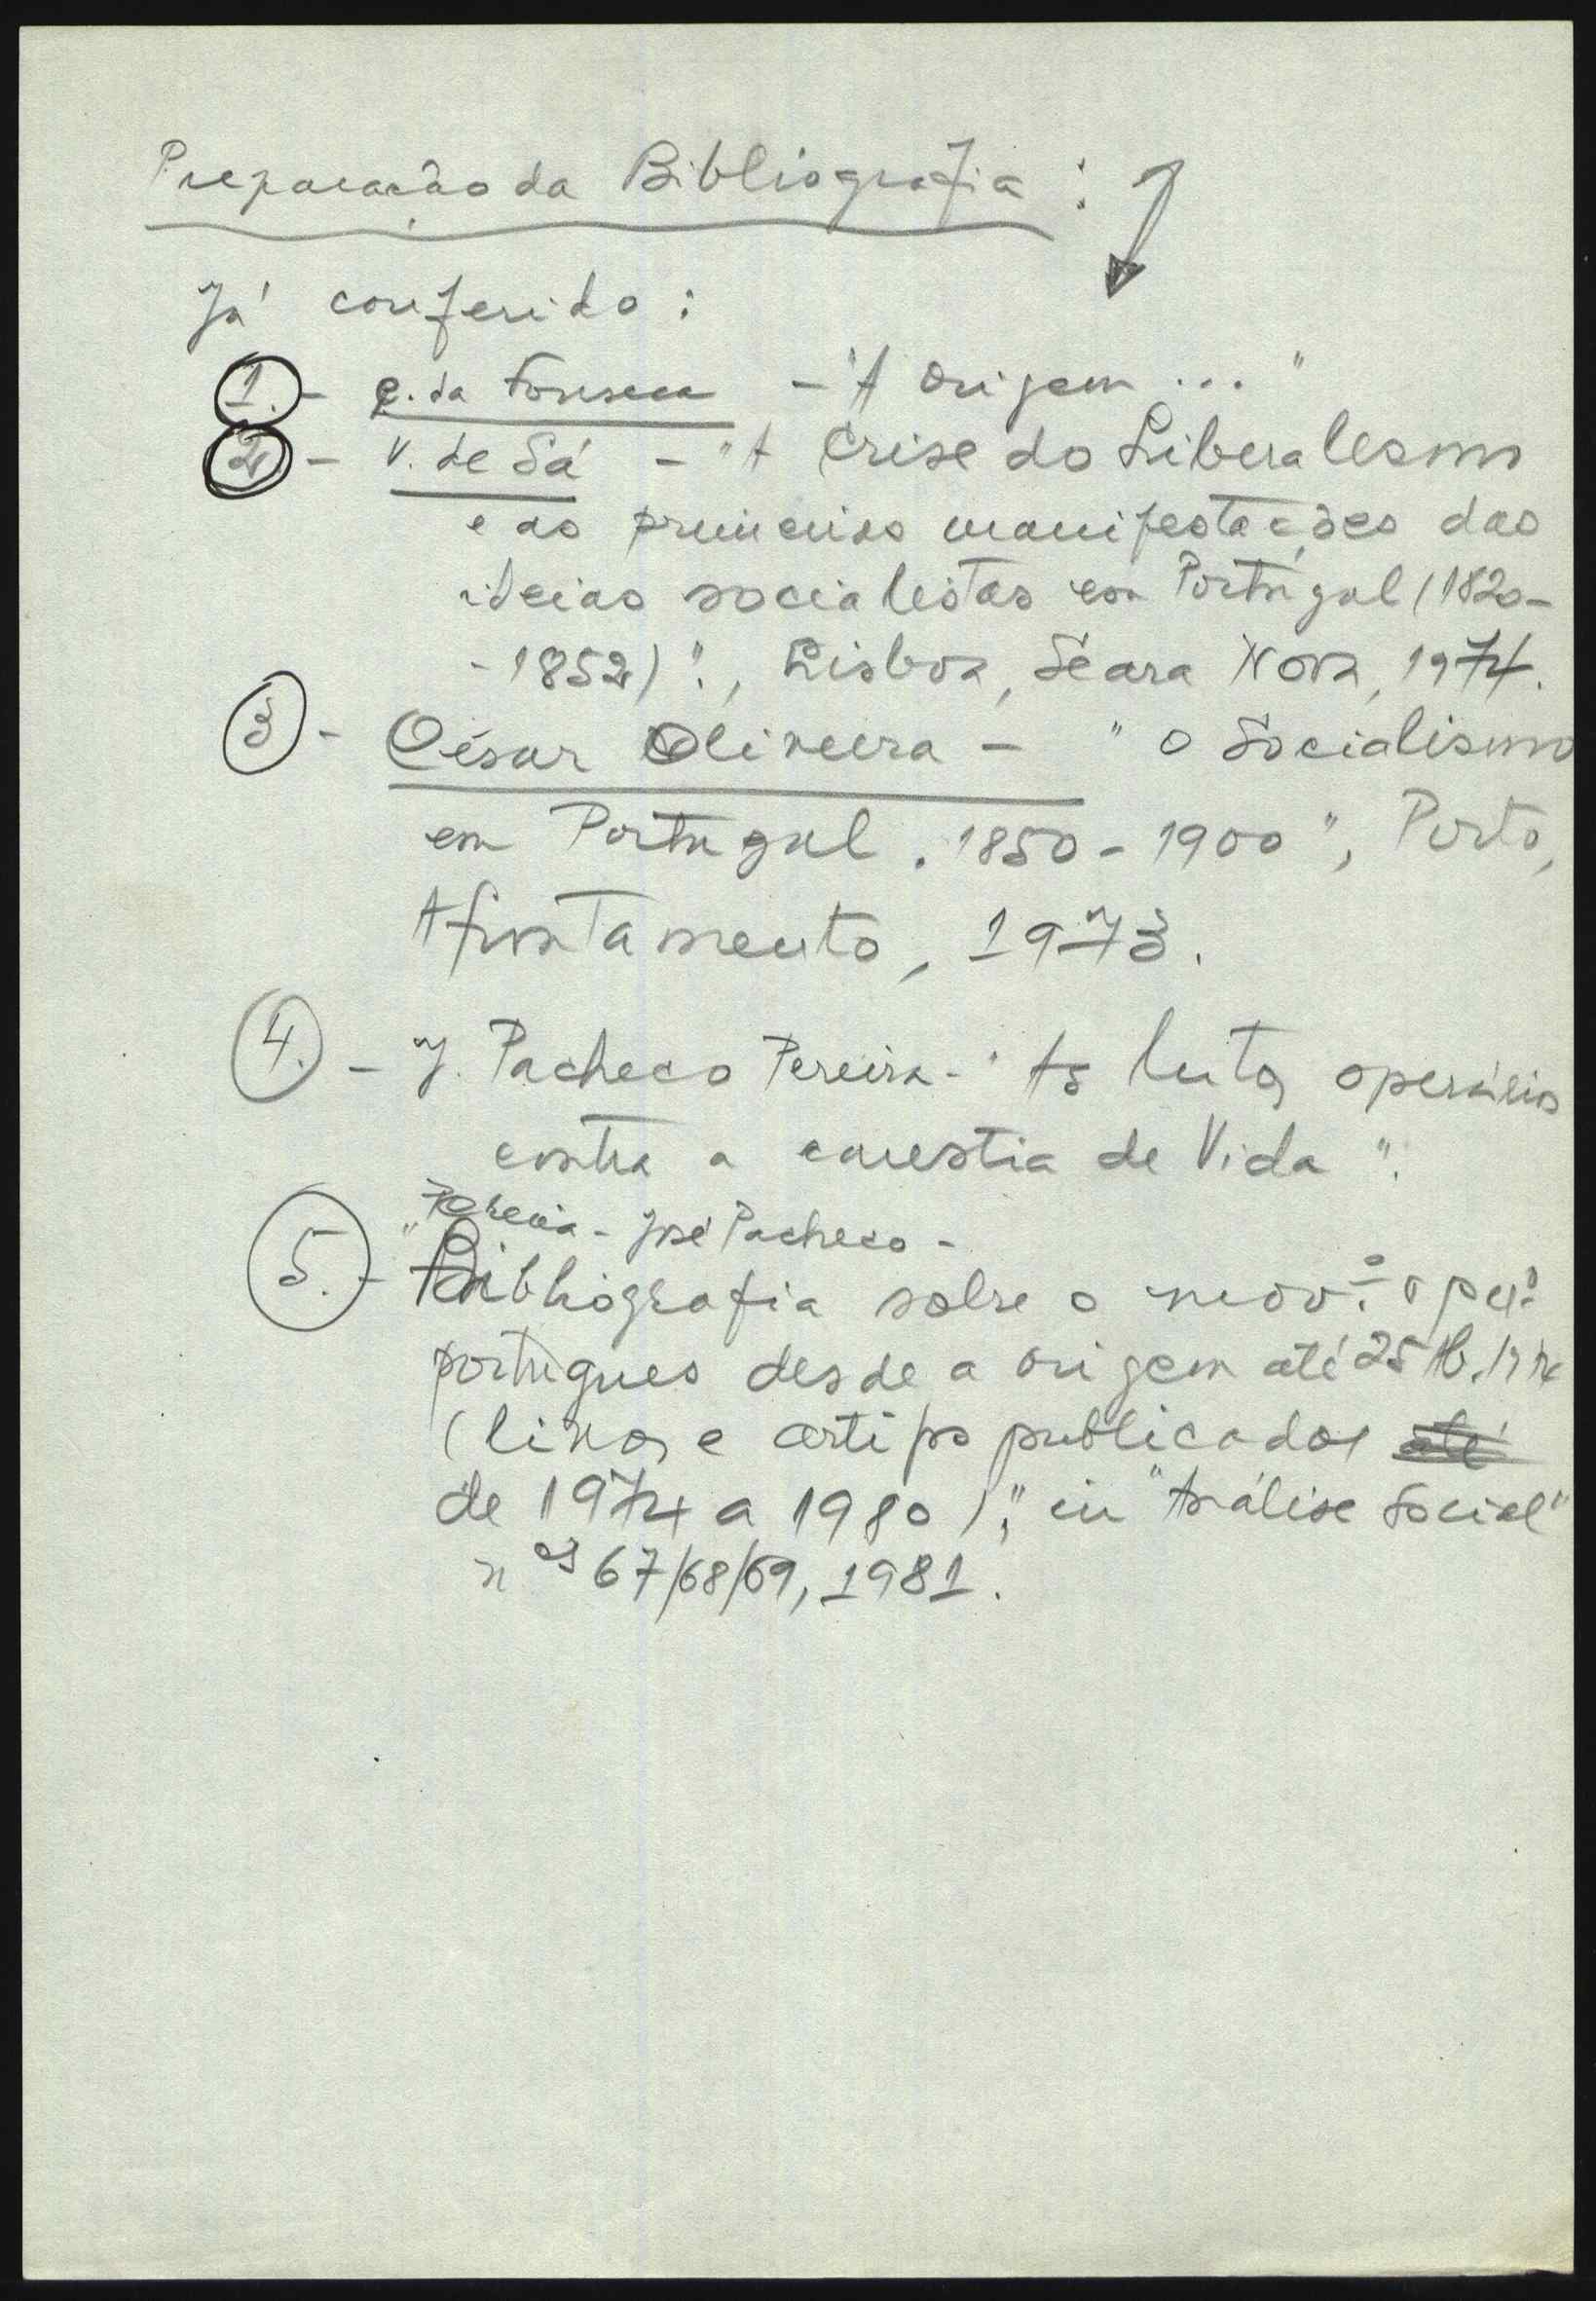 Preparação da Bibliografia :
Já conferido :
1. - C. da Fonseca - "A origem ..."
2. - V. de Sá - "A Crise do Liberalismo
e as primeiras manifestações das
ideias socialistas em Portugal (1820-
-1852)", Lisboa, Seara Nova, 1974.
3 - César Oliveira - "O Socialismo
em Portugal. 1850-1900", Porto,
Afrontamento, 1973.
4. - J. Pacheco Pereira - "As lutas operárias
contra a carestia de Vida".
Pereira - José Pacheco -
5. - "Bibliografia sobre o mov.º oper.º
português desde a origem até 25 Ab. 1974
(livros e artigos publicados até
de 1974 a 1980)", in "Análise Social"
nos 67/68/69, 1981.